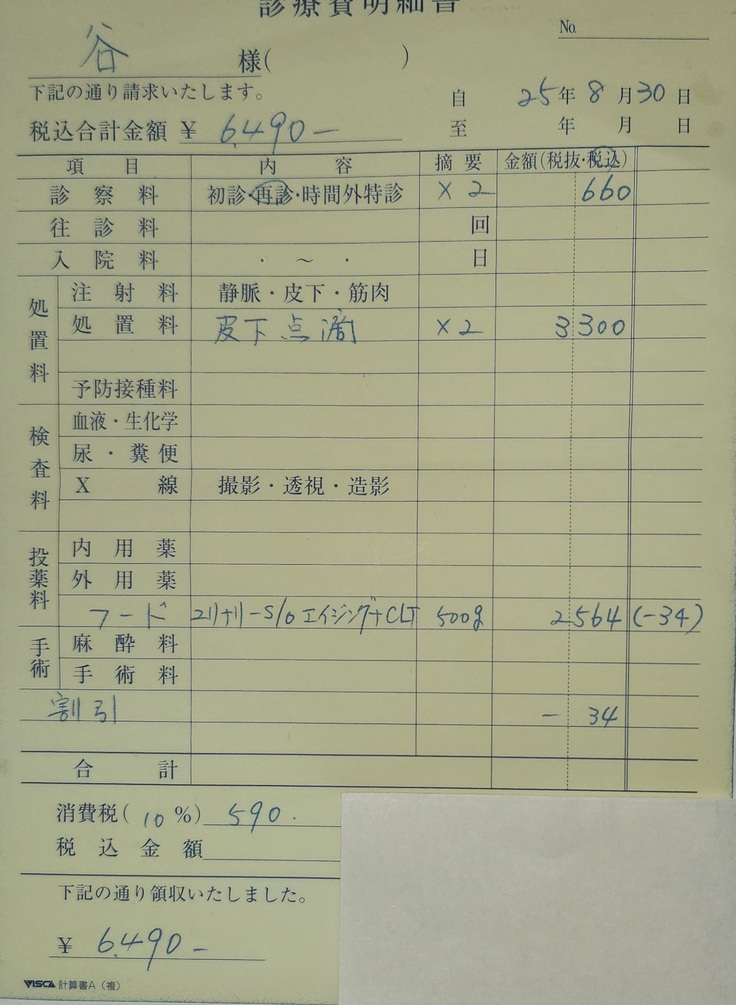 診療費明細書
No.
谷 様( )
下記の通り請求いたします。
自 25年 8月30日
税込合計金額 ¥ 6,490-
至 年 月 日
項目 内容 摘要 金額(税抜・税込)
診察料 初診・再診・時間外特診 ×2 660
往診料 回
入院料 ・ ~ ・ 日
処置料
注射料 静脈・皮下・筋肉
処置料 皮下点滴 ×2 3300
予防接種料
検査料
血液・生化学
尿・糞便
X線 撮影・透視・造影
投薬料
内用薬
外用薬
フード ユリナリーS/O エイジング7+CLT 500g 2564 (-34)
手術
麻酔料
手術料
割引 - 34
合計
消費税(10%) 590.
税込金額
下記の通り領収いたしました。
¥ 6,490-
VISCA 計算書A(複)